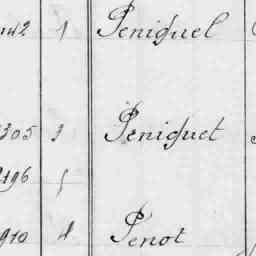 142 1 Peniguel
305 3 Peniguet
2196 5
910 4 Penot